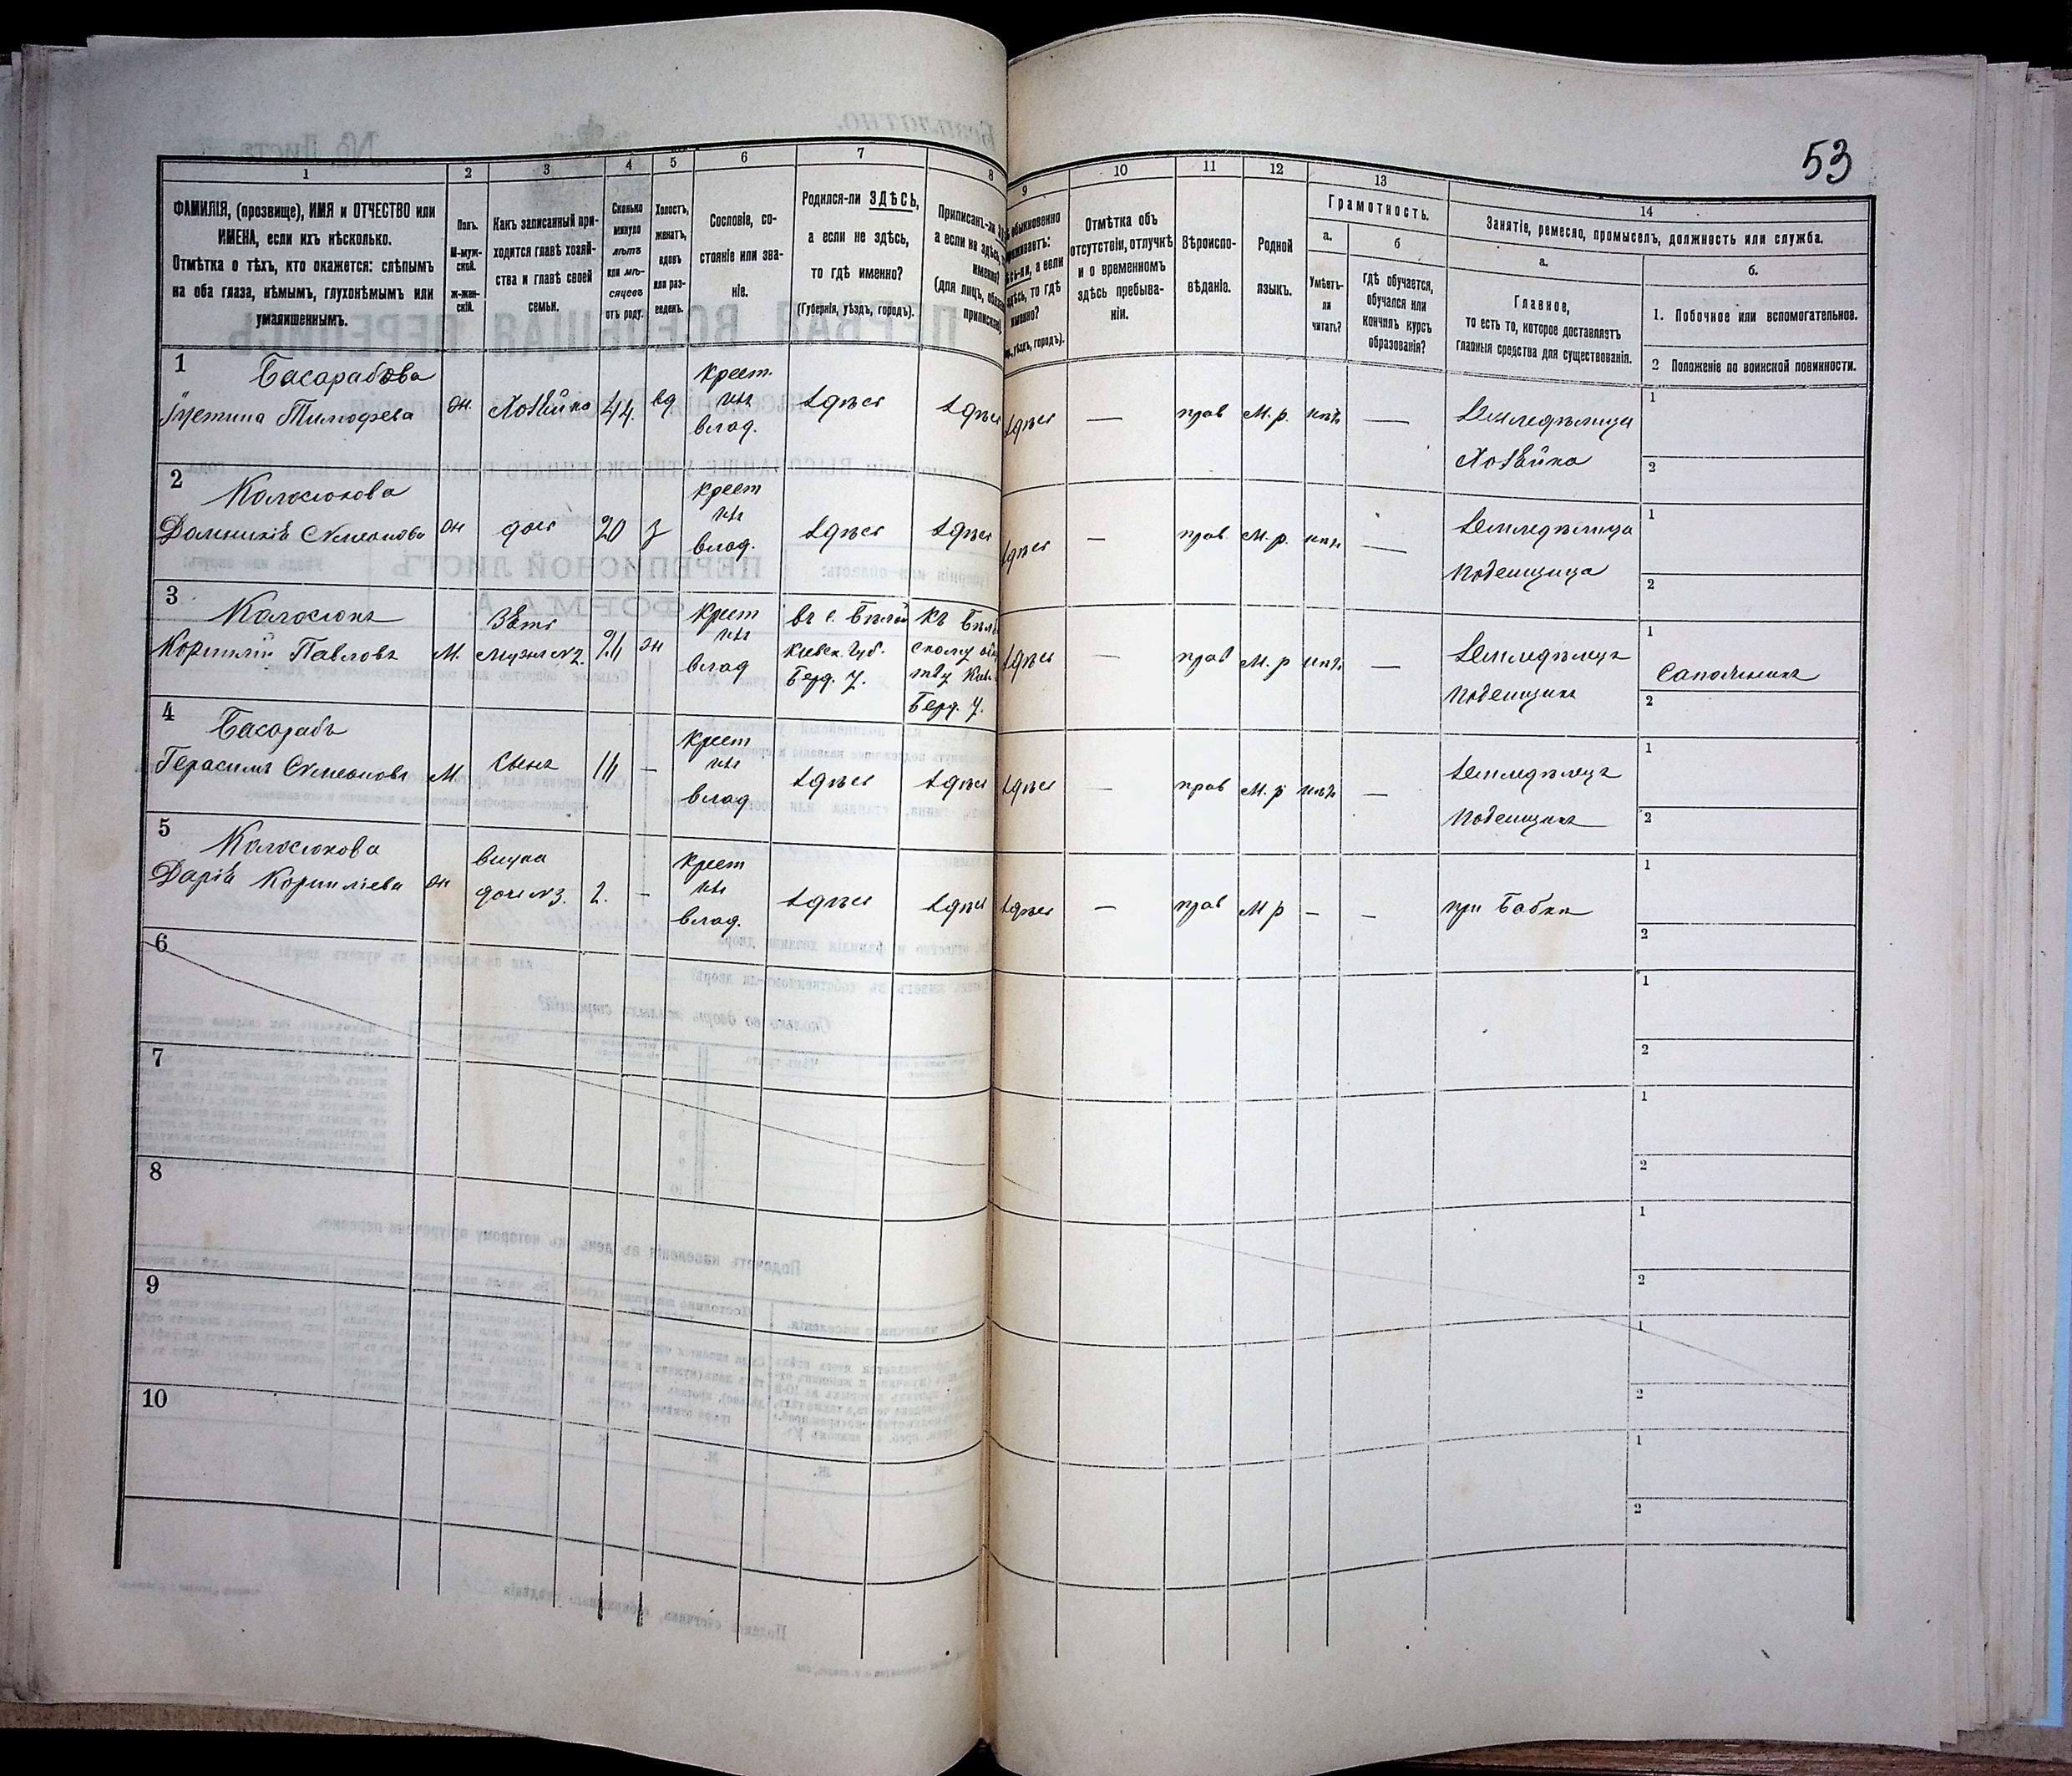 53
1
2
3
4
5
6
7
8
9
10
11
12
13
14
ФАМИЛІЯ, (прозвище), ИМЯ и ОТЧЕСТВО или
ИМЕНА, если ихъ нѣсколько.
Отмѣтка о тѣхъ, кто окажется: слѣпымъ
на оба глаза, нѣмымъ, глухонѣмымъ или
умалишеннымъ.
Полъ.
М-муж-
ской.
ж-жен-
скій.
Какъ записанный при-
ходится главѣ хозяй-
ства и главѣ своей
семьи.
Сколько
минуло
лѣтъ
или мѣ-
сяцевъ
отъ роду.
Холостъ,
женатъ,
вдовъ
или раз-
веденъ.
Сословіе, со-
стояніе или зва-
ніе.
Родился-ли ЗДѢСЬ,
а если не здѣсь,
то гдѣ именно?
(Губернія, уѣздъ, городъ).
Приписанъ-ли
а если не здѣсь,
(для лицъ,
обыкновенно
а если
здѣсь, то гдѣ
именно?
уѣздъ, городъ).
Отмѣтка объ
отсутствіи, отлучкѣ
и о временномъ
здѣсь пребыва-
ніи.
Вѣроиспо-
вѣданіе.
Родной
языкъ.
Грамотность.
а.
Умѣетъ-
ли
читать?
б
гдѣ обучается,
обучался или
кончилъ курсъ
образованія?
Занятіе, ремесло, промыселъ, должность или служба.
а.
Главное,
то есть то, которое доставляетъ
главныя средства для существованія.
б.
1. Побочное или вспомогательное.
2 Положеніе по воинской повинности.
1
Басарабова
Устина Тимофеева
ж.
Хозяйка
44
вд
крест.
изъ
влад.
здѣсь
здѣсь
здѣсь
—
прав
М. р.
нѣтъ
—
Земледѣлица
Хозяйка
1
2
2
Колосюкова
Домникія Симеонова
ж
дочь
20
з
крест
изъ
влад.
здѣсь
здѣсь
здѣсь
—
прав
М. р.
нѣтъ
—
Земледѣлица
Поденщица
1
2
3
Колосюкъ
Корнилій Павловъ
М.
Зять
мужъ №2.
21
ж
крест
изъ
влад
въ с. Бѣлой
Кіевск. Губ.
Берд. У.
къ Бѣл
скому об
тву Кіев
Берд. У.
здѣсь
—
прав
М. р
нѣтъ
—
Земледѣлецъ
Поденщикъ
1
Сапожникъ
2
4
Басарабъ
Герасимъ Симеоновъ
М
сынъ
16
—
крест
изъ
влад
здѣсь
здѣсь
здѣсь
—
прав
М. р
нѣтъ
—
Земледѣлецъ
Поденщикъ
1
2
5
Колосюкова
Дарія Корниліева
ж
внучка
дочь №3.
2.
—
крест
изъ
влад.
здѣсь
здѣсь
здѣсь
—
прав
М р
—
—
при Бабкѣ
1
2
6
1
2
7
1
2
8
1
2
9
1
2
10
1
2